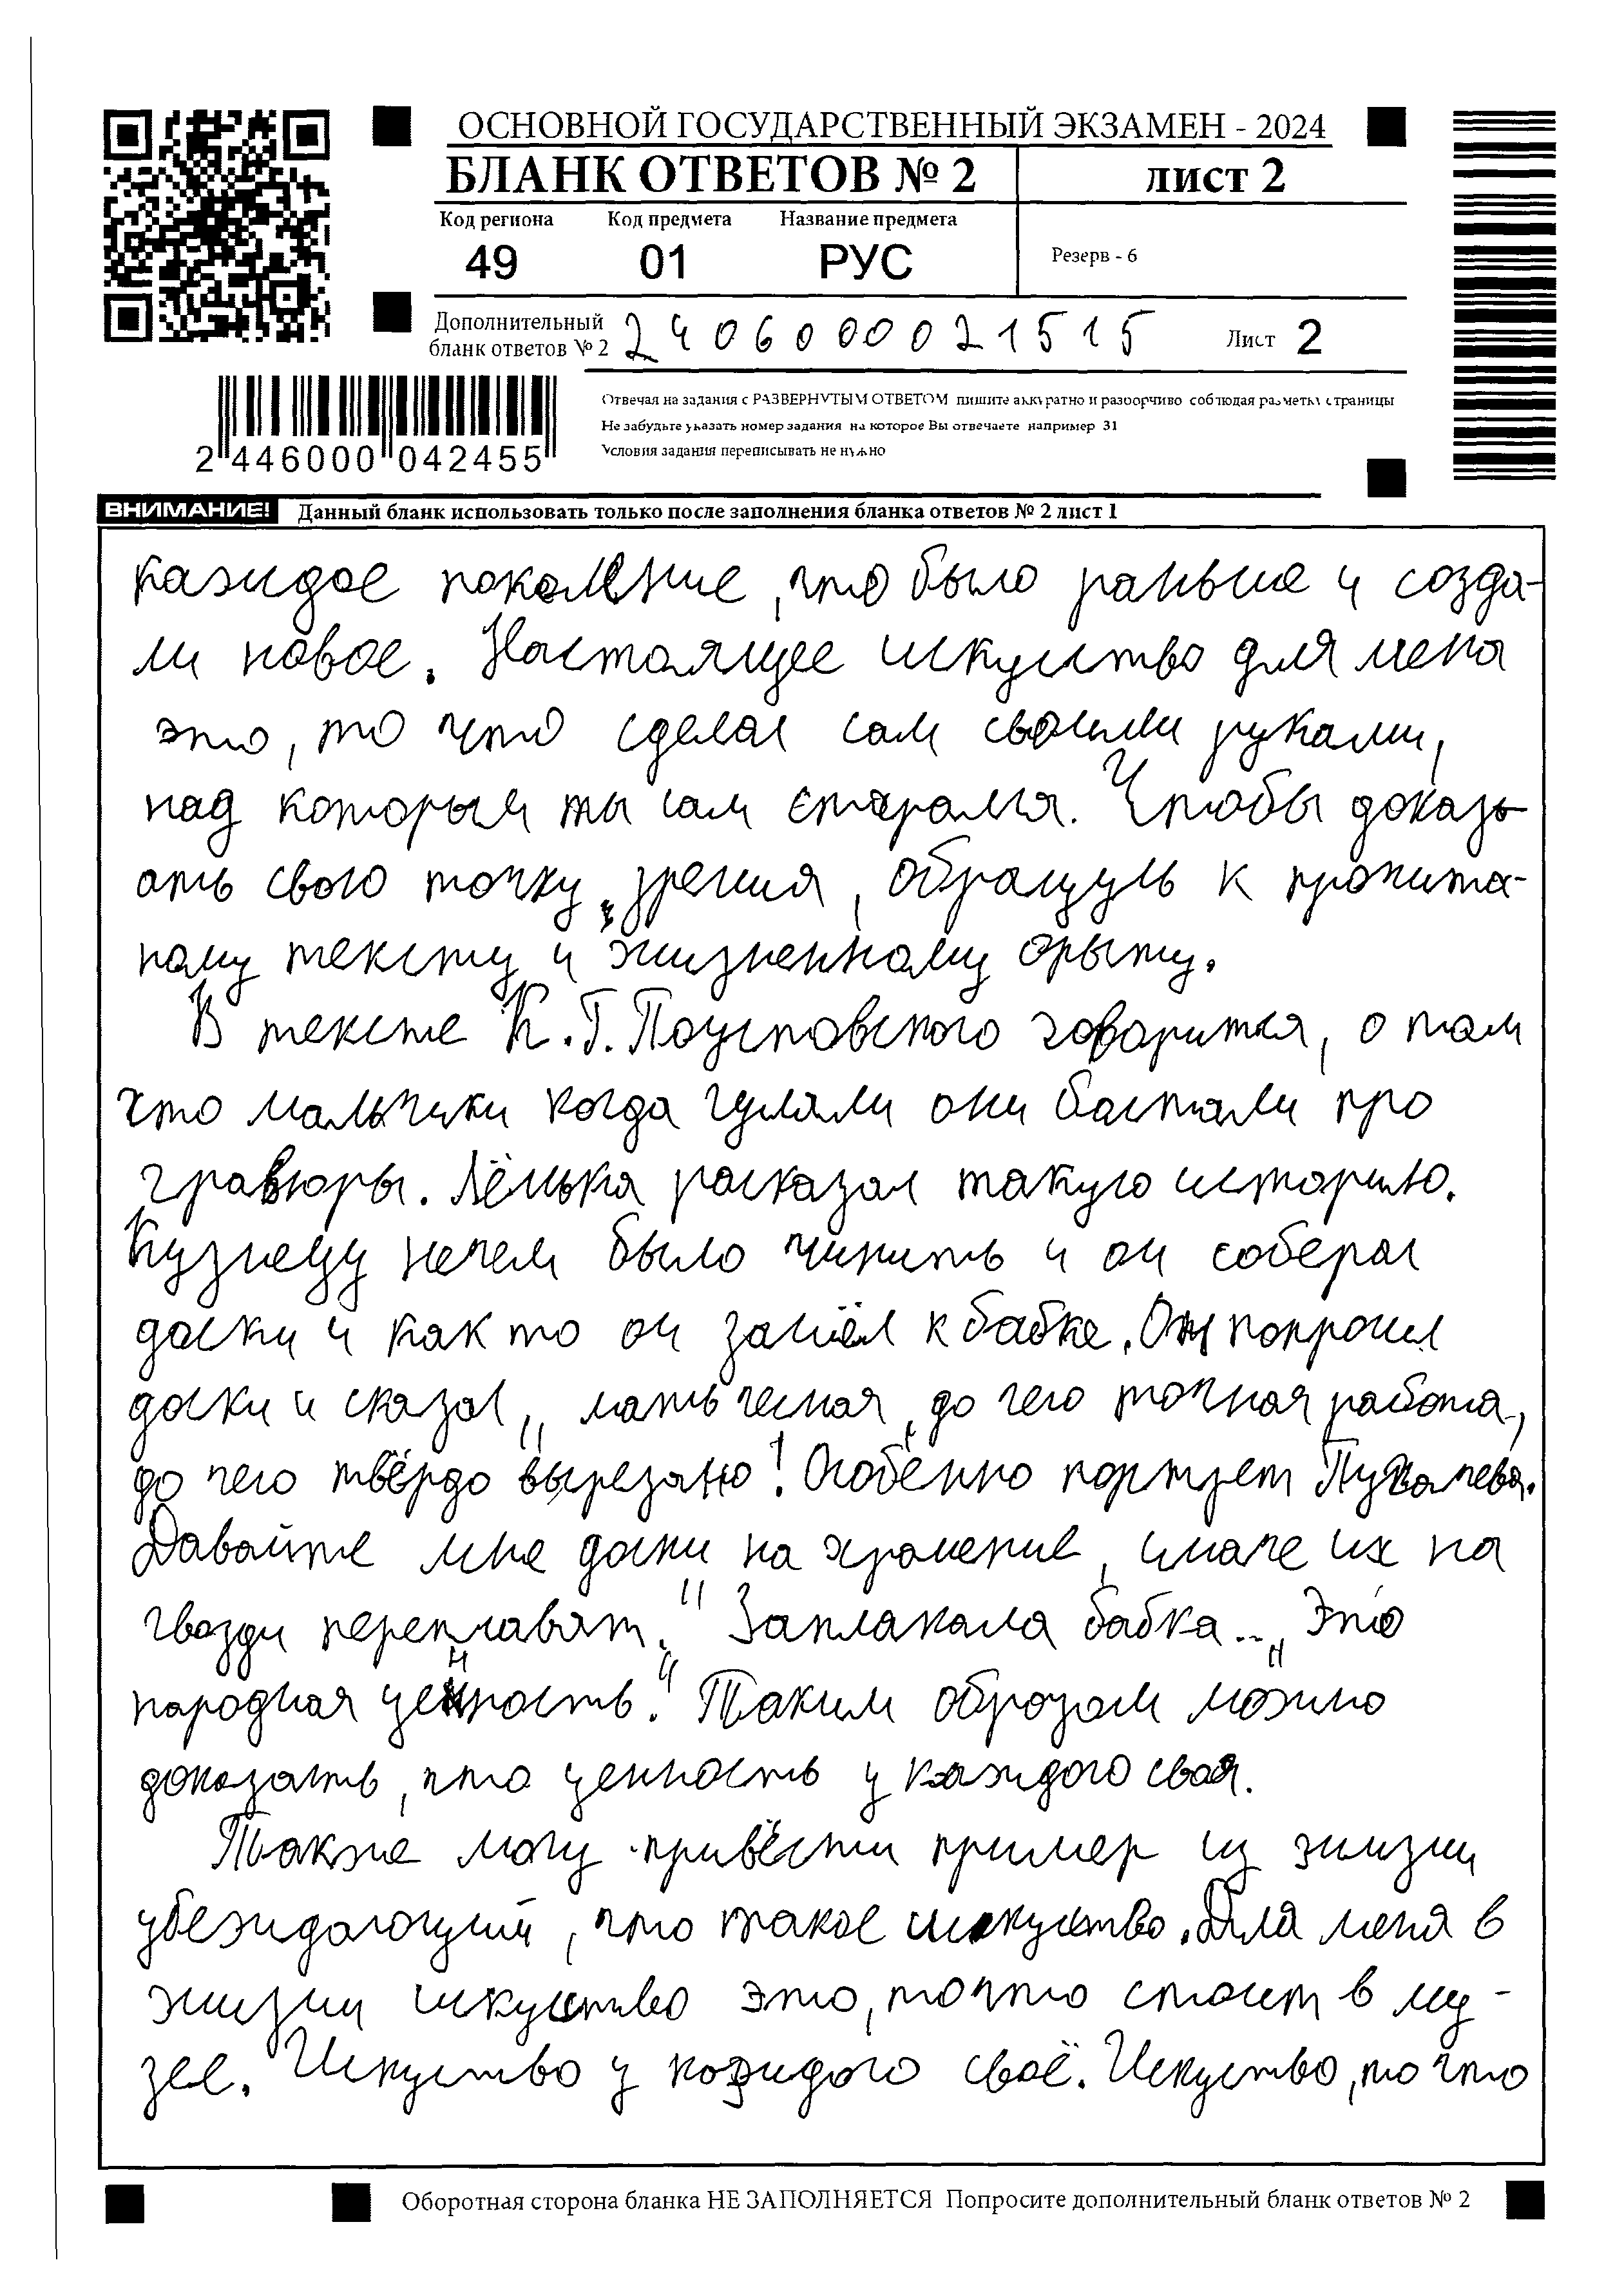 ОСНОВНОЙ ГОСУДАРСТВЕННЫЙ ЭКЗАМЕН - 2024
БЛАНК ОТВЕТОВ № 2
лист 2
Код региона Код предмета Название предмета
49 01 РУС
Резерв - 6
Дополнительный бланк ответов № 2 2406000021515
Лист 2
Отвечая на задания с РАЗВЕРНУТЫМ ОТВЕТОМ пишите аккуратно и разборчиво соблюдая разметку страницы
Не забудьте указать номер задания на которое Вы отвечаете например 31
Условия задания переписывать не нужно
2 446000 042455
ВНИМАНИЕ! Данный бланк использовать только после заполнения бланка ответов № 2 лист 1
каждое покаление, что было раньше и созда-
ли новое. Настоящее искуство для меня
это, то что сделал сам своими руками,
над которым ты сам старался. Чтобы доказ-
ать свою точку зрения, обращусь к прочита-
ному тексту и жизненному орыту.
В тексте К.Г.Паустовского говорится, о том
что мальчики когда гуляли они болтали про
гравюры. Лёнька расказал такую историю.
Кузнецу нечем было чинить и он соберал
доски и как то он зашёл к бабке. Он попросил
доски и сказал „мать чесная, до чего точная работа,
до чего твёрдо вырезано! Особенно портрет Пугачева.
Давайте мне доски на хранение, иначе их на
гвозди переплавят." Заплакала бабка... „Это
народная ценность." Таким образом можно
доказать, что ценность у каждого своя.
Также могу привести пример из жизни
убеждающий, что такое искуство. Для меня в
жизни искуство это, то что стоит в му-
зее. Искуство у каждого своё. Искуство, то что
Оборотная сторона бланка НЕ ЗАПОЛНЯЕТСЯ Попросите дополнительный бланк ответов № 2